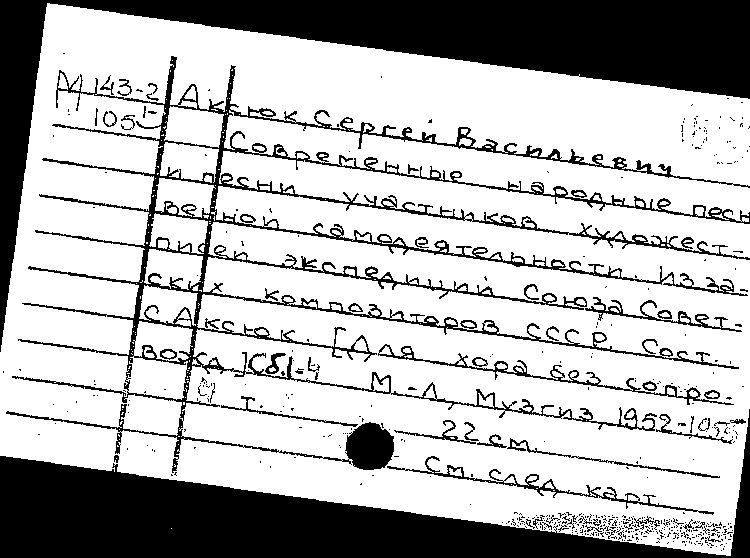 М 143-2
105
Аксюк, Сергей Васильевич
Современные народные песн
и песни участников художест-
венной самодеятельности. Из за-
писей экспедиций Союза Совет-
ских композиторов СССР. Сост.
С. Аксюк. [Для хора без сопро-
вожд.] Сб. 1-4 М.-Л., Музгиз, 1952-1955
4 т. 22 см.
См. след карт